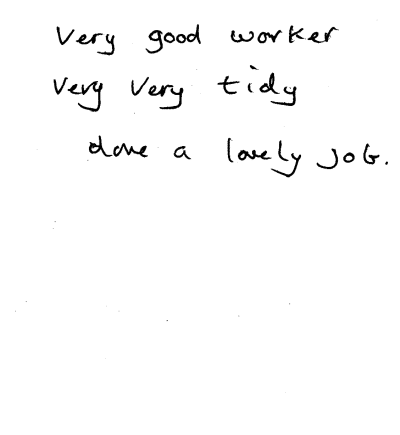 Very good worker
Very Very tidy
done a lovely job.